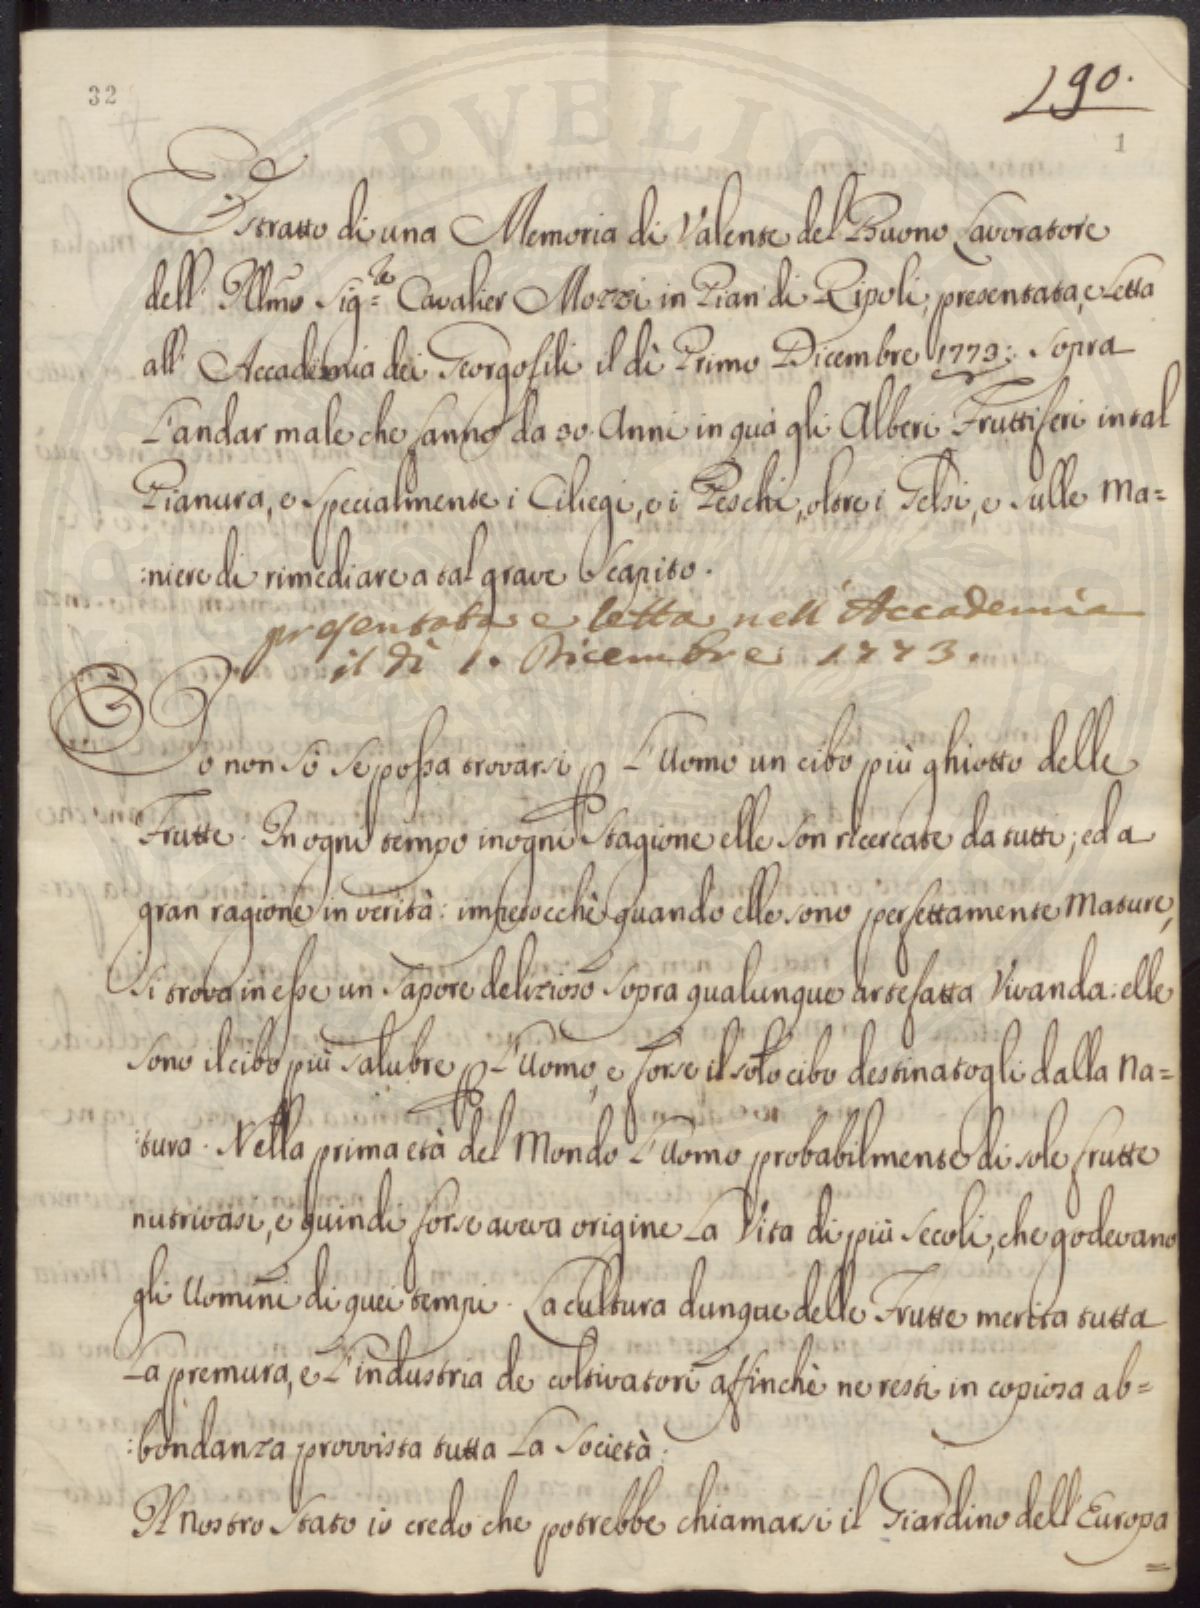 32
190.
1
Estratto di una Memoria di Valente del Buono Lavoratore
dell' Illmo Sig.re Cavalier Mozzi in Pian di Ripoli, presentata, e Letta
all' Accademia dei Georgofili il dì Primo Dicembre 1773: Sopra
L'andar male che fanno da 30. Anni in quà gli Alberi Fruttiferi in tal
Pianura, e Specialmente i Ciliegi, e i Peschi, oltre i Gelsi, e Sulle Ma=
:niere di rimediare a tal grave Scapito.
presentata e letta nell' Accademia
il dì 1. Dicembre 1773.
Io non Sò Se possa trovarsi p L'Uomo un cibo più ghiotto delle
Frutte. In ogni tempo in ogni Stagione elle Son ricercate da tutti; ed a
gran ragione in verità: imperocchè quando elle sono perfettamente Mature,
Si trova in esse un Sapore delizioso Sopra qualunque artefatta Vivanda: elle
Sono il cibo più Salubre p L'Uomo, e forse il solo cibo destinatogli dalla Na=
:tura. Nella prima età del Mondo L'Uomo probabilmente di sole frutte
nutrivasi, e quindi forse aveva origine La Vita di più Secoli, che godevano
gli Uomini di quei tempi. La cultura dunque delle Frutte merita tutta
La premura, e L'industria de coltivatori affinchè ne resti in copiosa ab=
:bondanza provvista tutta La Società.
Il Nostro Stato io credo che potrebbe chiamarsi il Giardino dell'Europa
=
PVBLIC